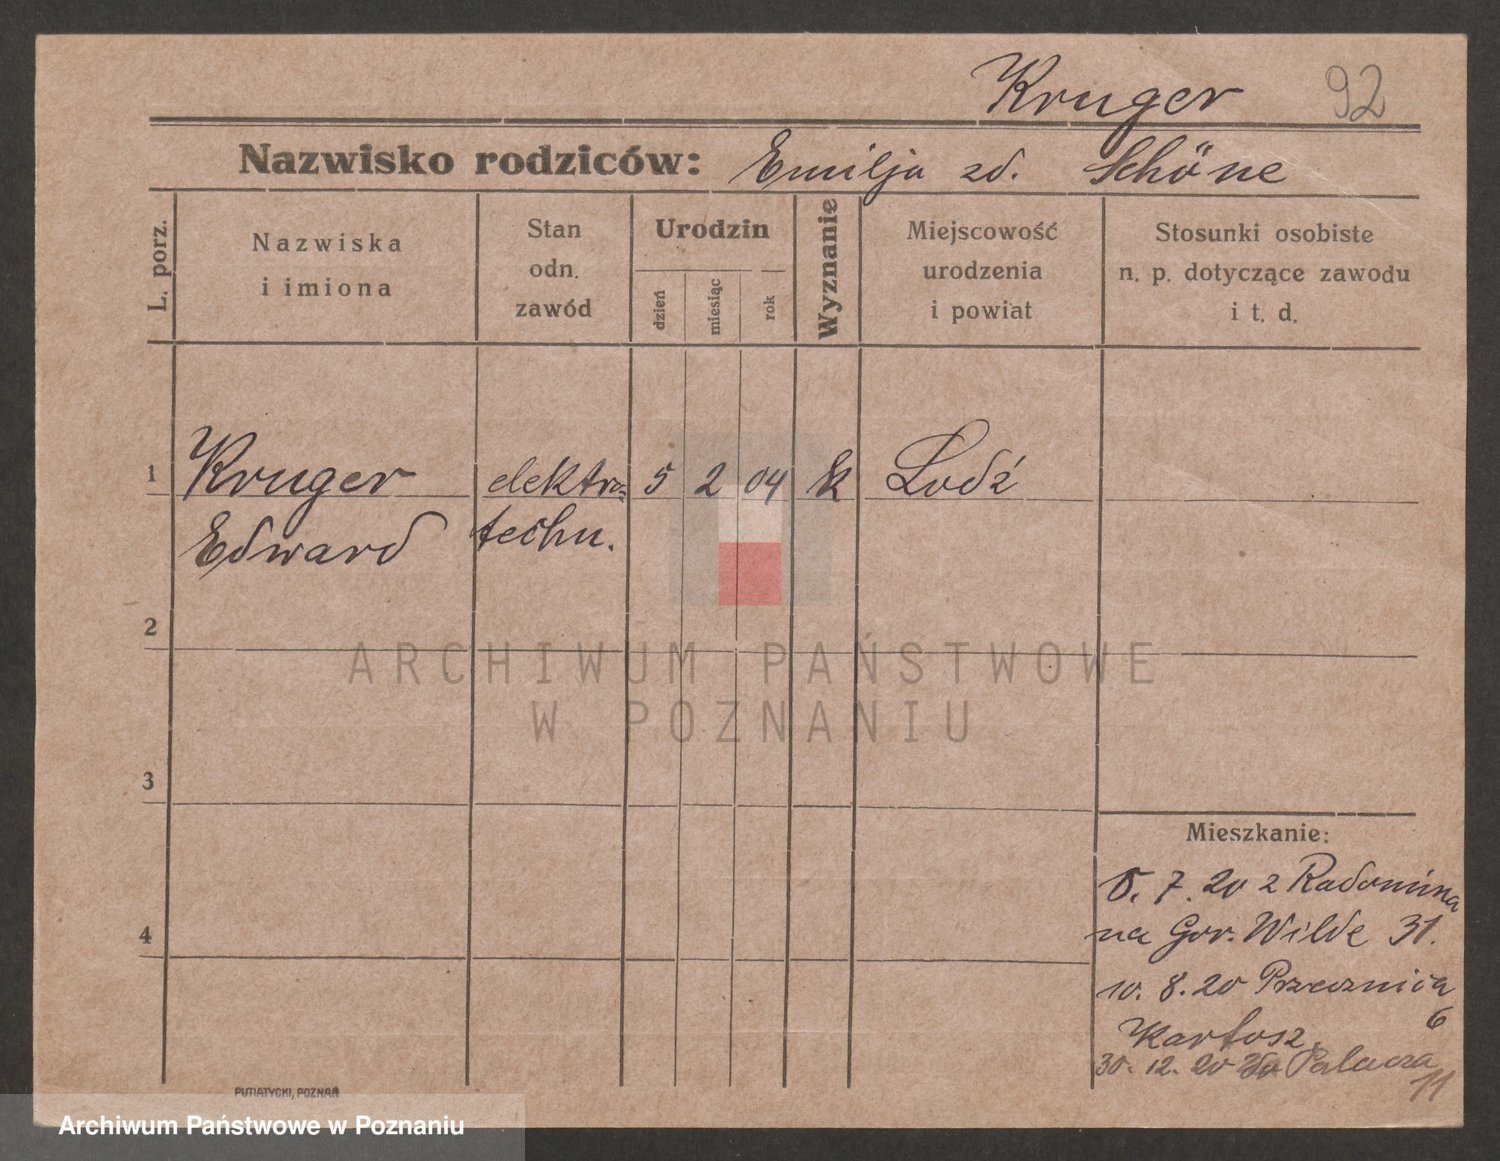 Kruger 92
Nazwisko rodziców: Emilja zd. Schöne
L. porz.
Nazwiska
i imiona
Stan
odn.
zawód
Urodzin
dzień
miesiąc
rok
Wyznanie
Miejscowość
urodzenia
i powiat
Stosunki osobiste
n. p. dotyczące zawodu
i t. d.
1 Kruger elektro= 5 2 04 k Lodź
Edward techn.
2
ARCHIWUM PAŃSTWOWE
W POZNANIU
3
Mieszkanie:
5. 7. 20 z Radomina
4 na Gór. Wilde 31.
10. 8. 20 Przecznica
6
Kartosz.
30. 12. 20 do Palacza
11
PUTIATYCKI, POZNAŃ
Archiwum Państwowe w Poznaniu